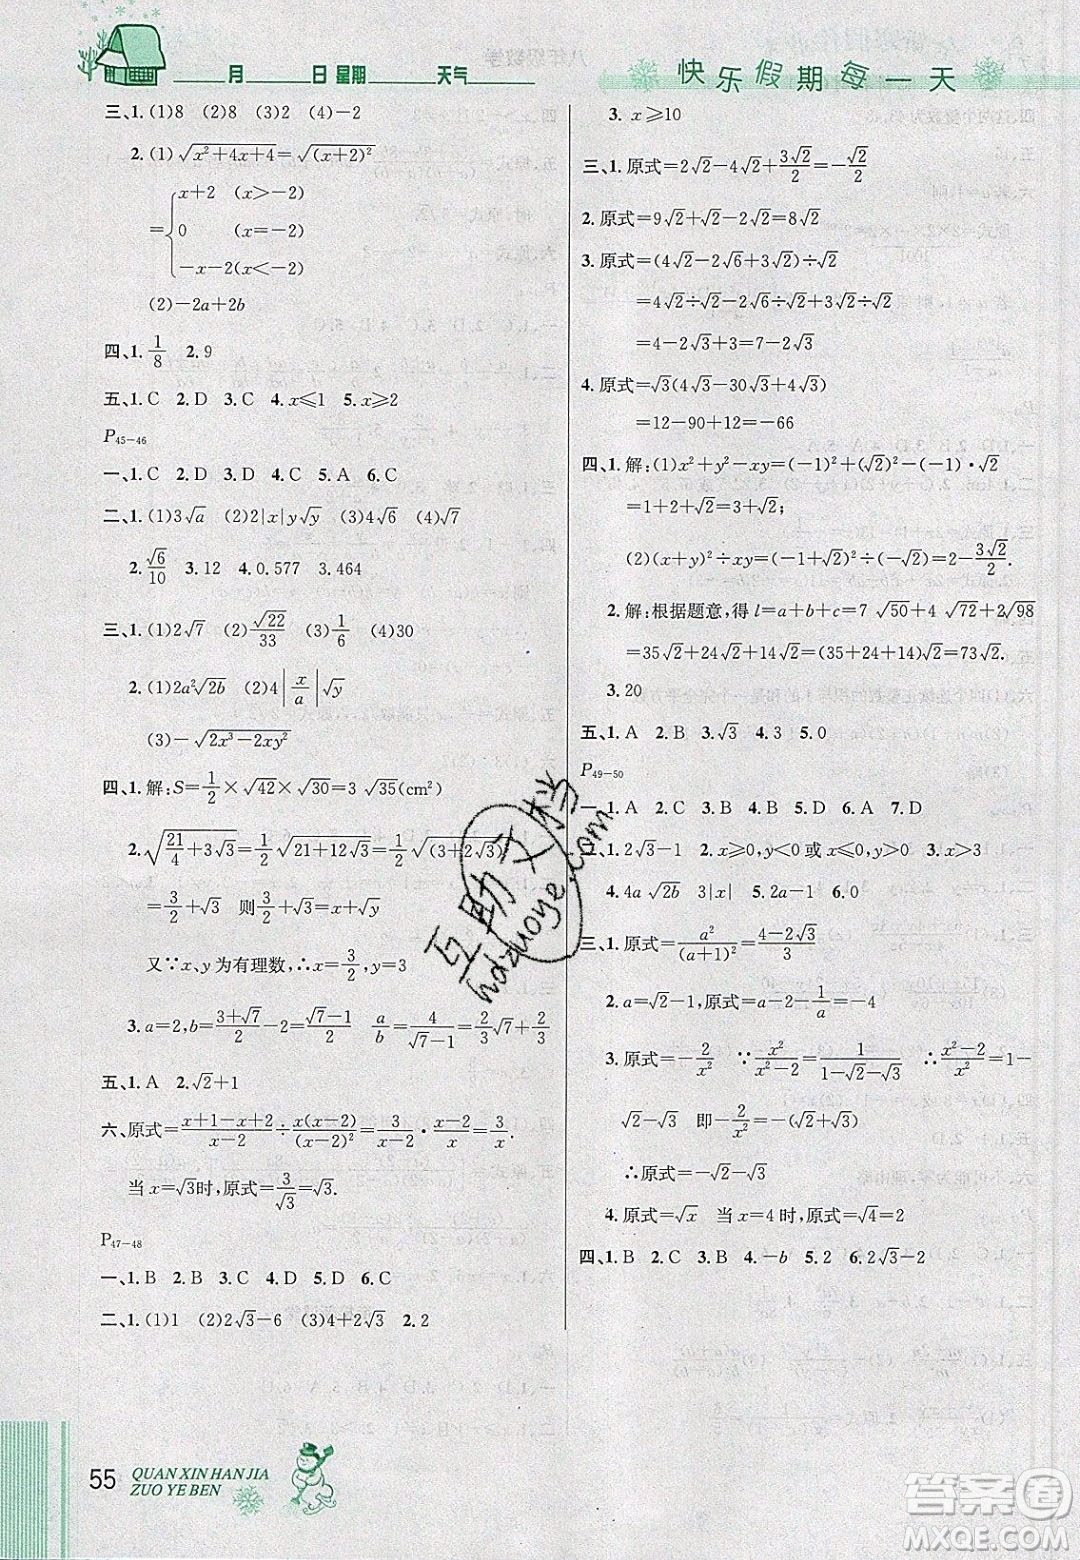 ____月____日 星期____天气____
快乐假期每一天
三、1.(1)8 (2)8 (3)2 (4)-2
2.(1)√(x²+4x+4)=√((x+2)²)
={x+2 (x>-2)
0 (x=-2)
-x-2(x<-2)
(2)-2a+2b
四、1.1/8 2.9
五、1.C 2.D 3.C 4.x≤1 5.x≥2
P45-46
一、1.C 2.D 3.C 4.D 5.A 6.C
二、1.(1)3√a (2)2|x|y√y (3)4√6 (4)√7
2.√6/10 3.12 4.0.577 3.464
三、1.(1)2√7 (2)√22/33 (3)1/6 (4)30
2.(1)2a²√(2b) (2)4|x/a|√y
(3)-√(2x³-2xy²)
四、1.解:S=1/2×√42×√30=3√35(cm²)
2.√(21/4+3√3)=1/2√(21+12√3)=1/2√((3+2√3)²)
=3/2+√3 则3/2+√3=x+y√3
又∵x、y为有理数,∴x=3/2,y=3
3.a=2,b=(3+√7)/2-2=(√7-1)/2 a/b=4/(√7-1)=2/3√7+2/3
五、1.A 2.√2+1
六、原式=(x+1-x+2)/(x-2)÷x(x-2)/(x-2)²=3/(x-2)·(x-2)/x=3/x.
当x=√3时,原式=3/√3=√3.
P47-48
一、1.B 2.B 3.C 4.D 5.D 6.C
二、1.(1)1 (2)2√3-6 (3)4+√2 2.2
3.x≥10
三、1.原式=2√2-4√2+3√2/2=-√2/2
2.原式=9√2+√2-2√2=8√2
3.原式=(4√2-2√6+3√2)÷√2
=4√2÷√2-2√6÷√2+3√2÷√2
=4-2√3+3=7-2√3
4.原式=√3(4√3-30√3+4√3)
=12-90+12=-66
四、1.解:(1)x²+y²-xy=(-1)²+(√2)²-(-1)·√2
=1+2+√2=3+√2;
(2)(x+y)²÷xy=(-1+√2)²÷(-√2)=2-3√2/2.
2.解:根据题意,得l=a+b+c=7√50+4√72+2√98
=35√2+24√2+14√2=(35+24+14)√2=73√2.
3.20
五、1.A 2.B 3.√3 4.3 5.0
P49-50
一、1.A 2.C 3.B 4.D 5.D 6.A 7.D
二、1.2√3-1 2.x≥0,y<0或x≤0,y<0 3.x>3
4.4a√(2b) 3|x| 5.2a-1 6.0
三、1.原式=a²/(a+1)²=(4-2√3)/3
2.a=√2-1,原式=a-2-1/a=-4
3.原式=-2/x² ∵x²/(x²-2)=1/(1-√2-√3) ∴(x²-2)/x²=1-
√2-√3 即-2/x²=-√2-√3
∴原式=-√2-√3
4.原式=√x 当x=4时,原式=√4=2
四、1.B 2.C 3.B 4.-b 5.2 6.2√3-2
55
QUAN XIN HAN JIA
ZUO YE BEN
互助文档
hdzuoye.com
答案圈
MXQE.COM